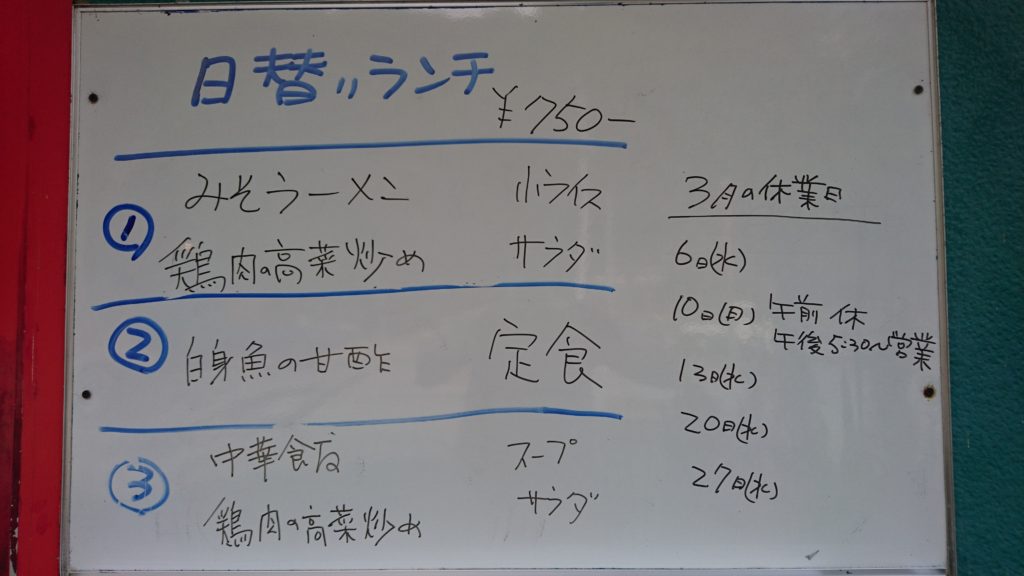 日替りランチ
¥750ー
① みそラーメン 小ライス
鶏肉の高菜炒め サラダ
② 白身魚の甘酢 定食
③ 中華飯 スープ
鶏肉の高菜炒め サラダ
3月の休業日
6日(水)
10日(日) 午前 休
午後5:30〜営業
13日(水)
20日(水)
27日(水)